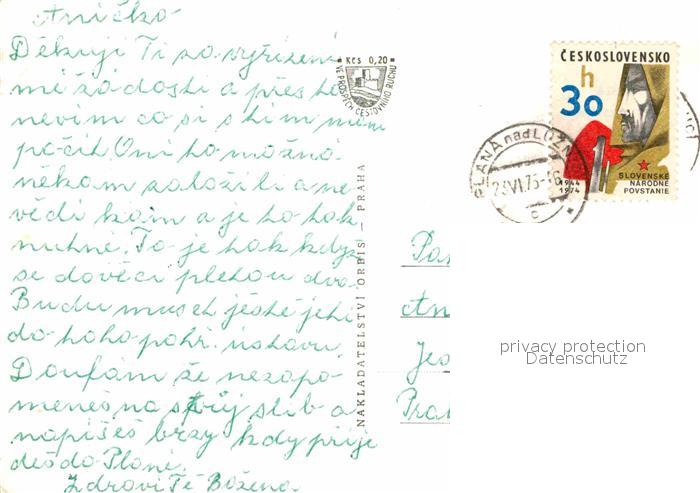 Aničko
Děkuji Ti za vyřízení
mé žádosti a přes to
nevím co si s tím mám
počít. Oni to možná
někam založili a ne
vědí kam a je to tak
nutné. To je tak když
se dověci pletou dva.
Budu muset ještě jeti
do toho pohř. ústavu.
Doufám že nezapo-
meneš na svůj slib a
napíšeš brzy kdy přije
deš do Plané.
Zdraví Tě Božena
Kčs 0,20
VE PROSPĚCH CESTOVNÍHO RUCHU
NAKLADATELSTVÍ ORBIS – PRAHA
ČESKOSLOVENSKO
h
30
SLOVENSKÉ
NÁRODNÉ
POVSTANIE
1944
1974
PLANÁ nad LUŽN
23.VI.75-16
c
Pan
An
Jes
Pra
privacy protection
Datenschutz